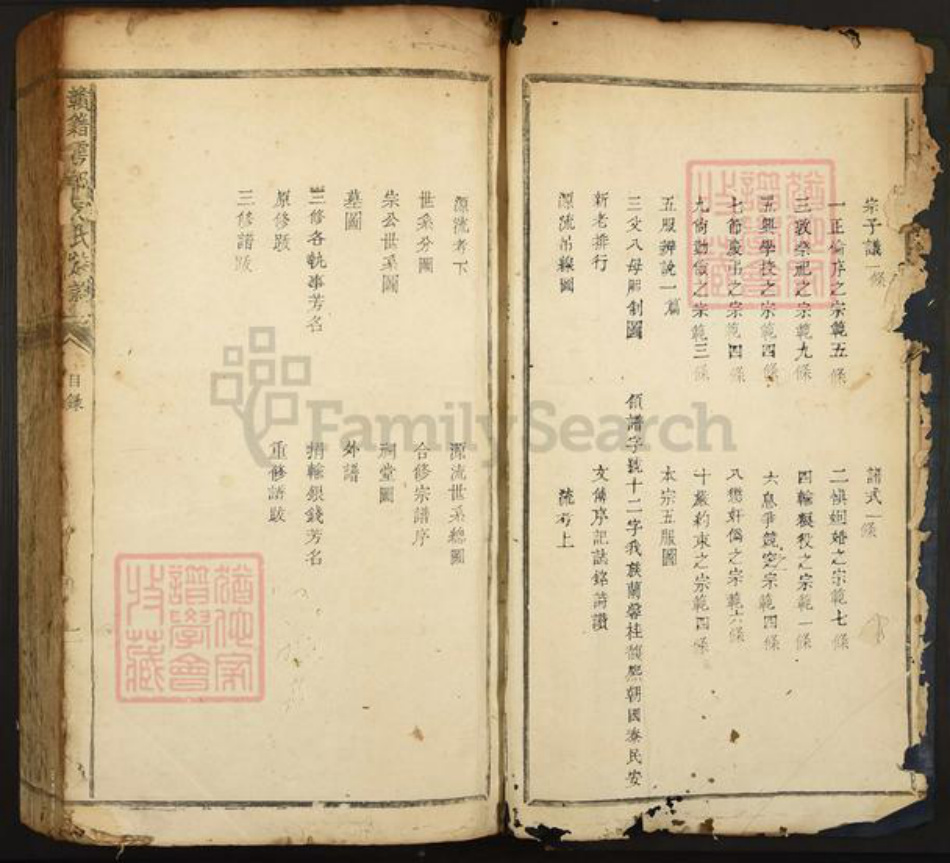 宗子議一條
譜式一條
一正倫序之宗範五條
二慎婣婚之宗範七條
三敦祭祀之宗範九條
四輸糧役之宗範一條
五興學校之宗範四條
六息爭競之宗範四條
七節慶弔之宗範四條
八懲奸僞之宗範六條
九尙勤儉之宗範三條
十嚴約束之宗範四條
五服辨說一篇
本宗五服圖
三父八母服制圖
領譜字號十二字我族蘭馨桂馥熙朝國泰民安
新老排行
文傳序記誌銘詩讚
源流吊線圖
流考上
源流考下
源流世系總圖
世系分圖
合修宗譜序
崇公世系圖
祠堂圖
墓圖
外譜
三修各執事芳名
捐輸銀錢芳名
原修跋
重修譜跋
三修譜跋
贛籍雩都
氏族譜
目錄
一
譜學會
收藏
譜學會
收藏
FamilySearch